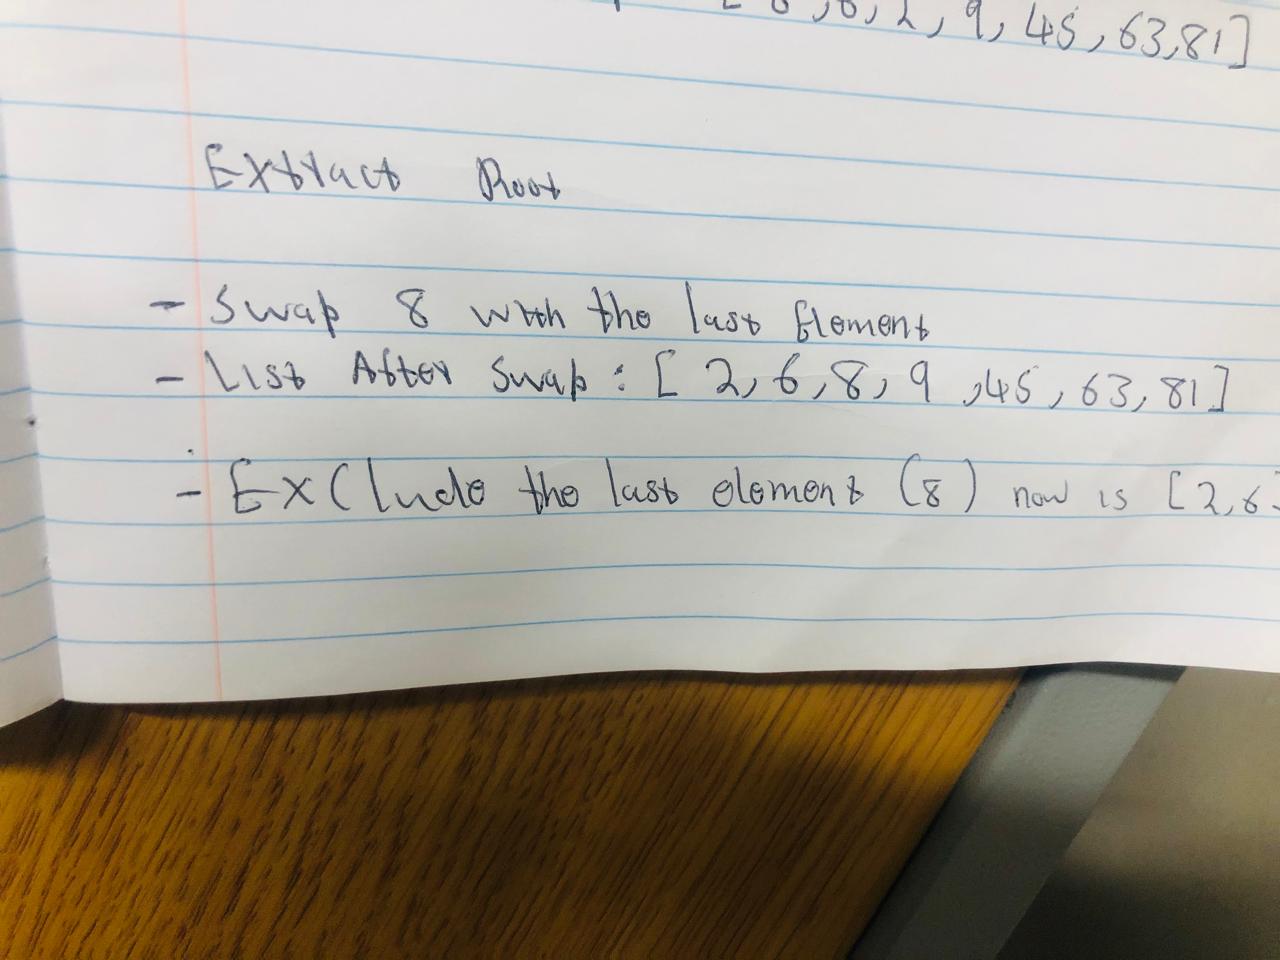 [8,6,2,9,45,63,81]
Extract Root
- Swap 8 with the last Element
- List After Swap: [2,6,8,9,45,63,81]
- Exclude the last element (8) now is [2,6]